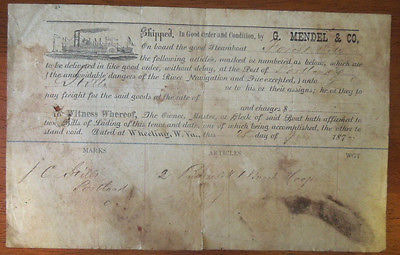 Shipped, In Good Order and Condition, by G. MENDEL & CO.
On board the good Steamboat
the following articles, marked or numbered as below, which are
to be delivered in like good order, without delay, at the Port of
(the unavoidable dangers of the River Navigation and Fire excepted,) unto
or to his or their assigns; he or they to
pay freight for the said goods at the rate of
and charges $
In Witness Whereof, The Owner, Master, or Clerk of said Boat hath affirmed to
two Bills of Lading of this tenor and date, one of which being accomplished, the other to
stand void. Dated at Wheeling, W. Va., this day of 187
MARKS ARTICLES WGT
J C 2
Portland